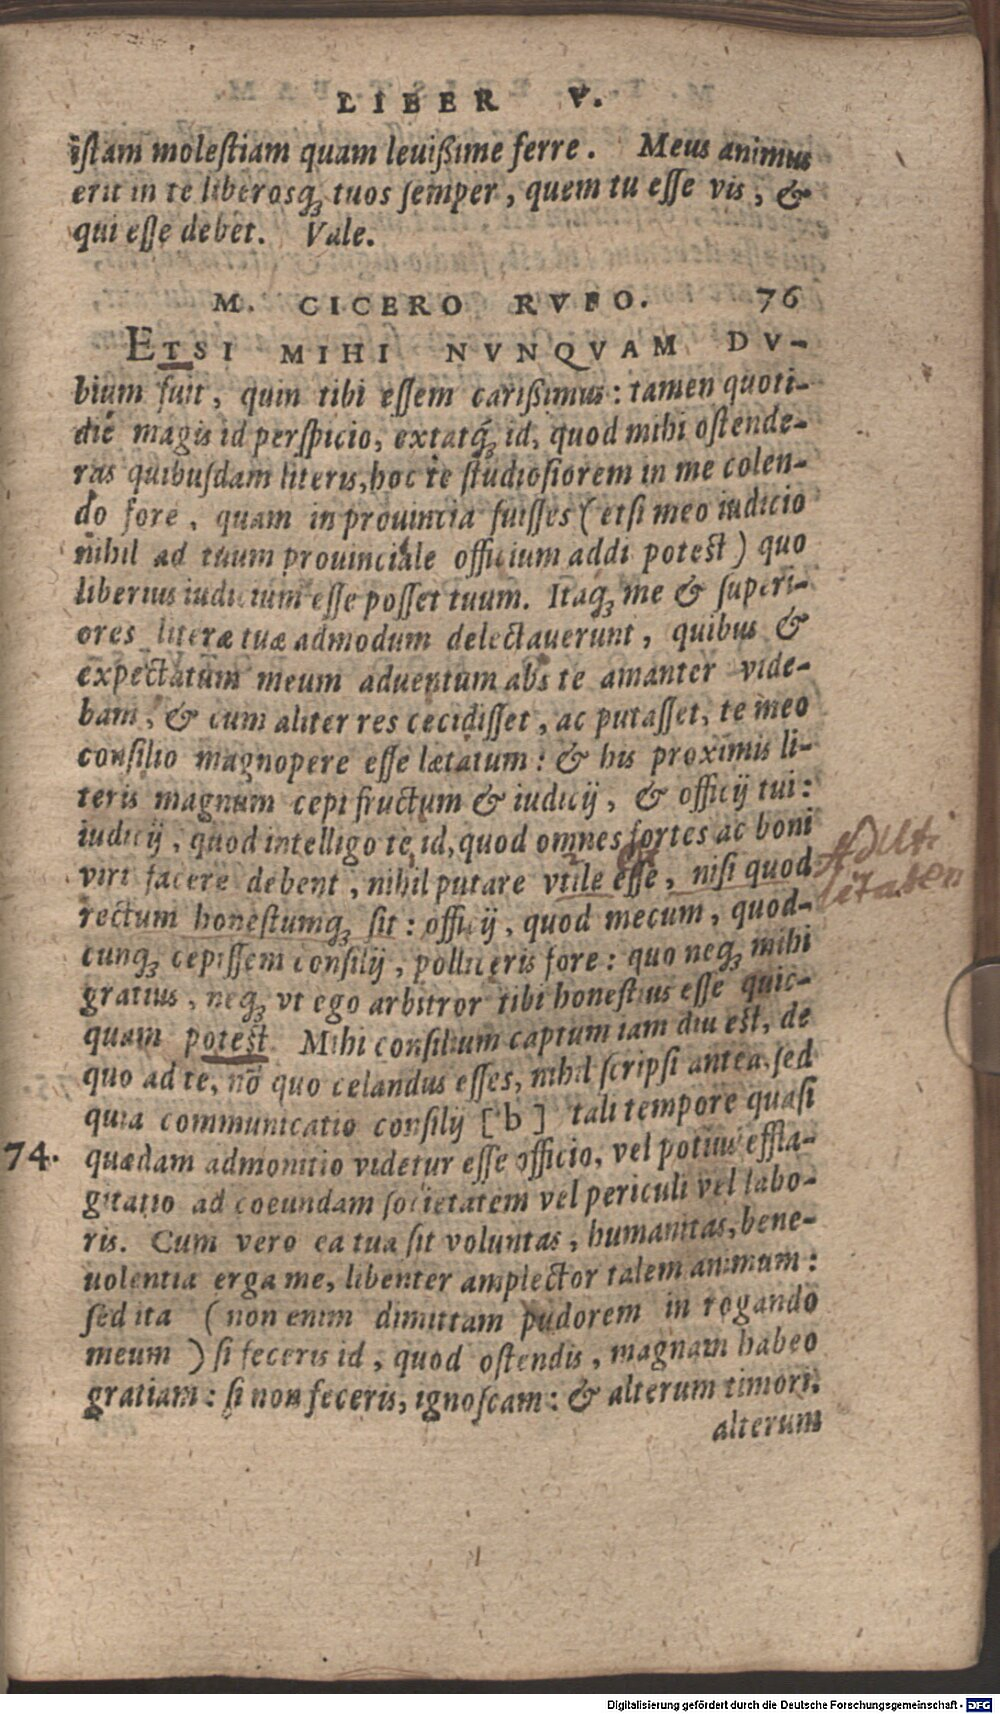 LIBER V.
istam molestiam quam leuißime ferre. Meus animus
erit in te liberosq́ꝫ tuos semper, quem tu esse vis, &
qui esse debet. Vale.
M. CICERO RVFO. 76
ETSI MIHI NVNQVAM DV-
bium fuit, quin tibi essem carißimus: tamen quoti-
die magis id perspicio, extatq́ꝫ id, quod mihi ostende-
ras quibusdam literis, hoc te studiosiorem in me colen-
do fore, quam in prouincia fuisses (etsi meo iudicio
nihil ad tuum prouinciale officium addi potest) quo
liberius iudicium esse posset tuum. Itaqꝫ me & superi-
ores literæ tuæ admodum delectauerunt, quibus &
expectatum meum aduentum abs te amanter vide-
bam, & cum aliter res cecidisset, ac putasset, te meo
consilio magnopere esse lætatum: & his proximis li-
teris magnum cepi fructum & iudicij, & officij tui:
iudicij, quod intelligo te id, quod omnes fortes ac boni
viri facere debent, nihil putare vtile esse, nisi quod
rectum honestumqꝫ sit: officij, quod mecum, quod-
cunqꝫ cepissem consilij, polliceris fore: quo neqꝫ mihi
gratius, neqꝫ vt ego arbitror tibi honestius esse quic-
quam potest. Mihi consilium captum iam diu est, de
quo ad te, nō quo celandus esses, nihil scripsi antea, sed
quia communicatio consilij [b] tali tempore quasi
74. quædam admonitio videtur esse officio, vel potius effla-
gitatio ad coeundam societatem vel periculi vel labo-
ris. Cum vero ea tua sit voluntas, humanitas, bene-
uolentia erga me, libenter amplector talem animum:
sed ita (non enim dimittam pudorem in rogando
meum) si feceris id, quod ostendis, magnam habeo
gratiam: si non feceris, ignoscam: & alterum timori,
alterum
Digitalisierung gefördert durch die Deutsche Forschungsgemeinschaft - DFG